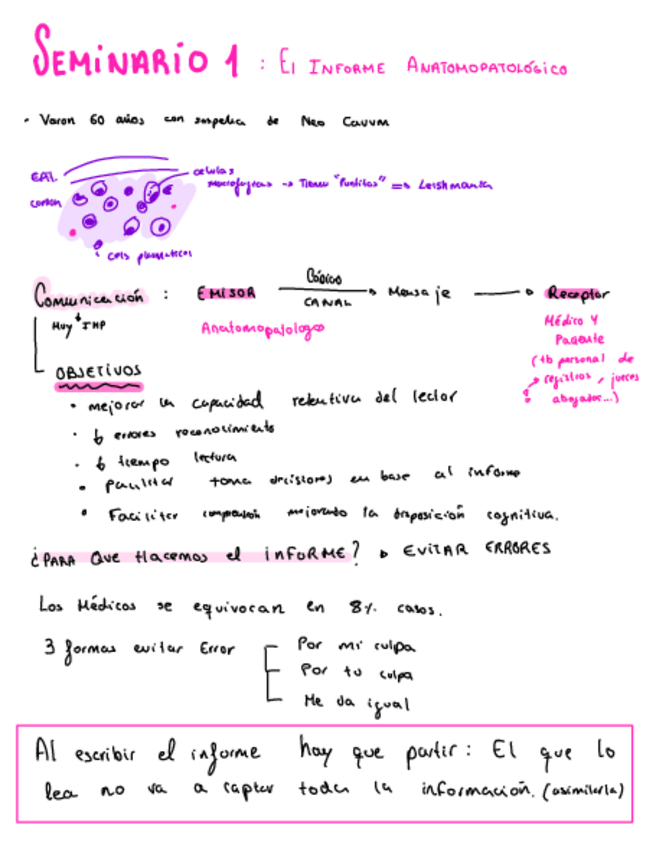 SEMINARIO 1 : El INFORME ANATOMOPATOLÓGICO
· Varon 60 años con sospecha de Neo Cavum
EPIT.
células
macrofágicas -> Tienen "Puntitos" => Leishmania
corion
cels plasmáticas
Comunicación : EMISOR Código CANAL Mensaje Receptor
Muy IMP
Anatomopatologo
Médico Y
Paciente
(tb personal de
registros, jueces
abogados...)
OBJETIVOS
· mejorar la capacidad retentiva del lector
· ↓ errores reconocimiento
· ↓ tiempo lectura
· Facilitar toma decisiones en base al informe
· Facilitar comprensión mejorando la disposición cognitiva.
¿PARA Que Hacemos el inFoRME? EVITAR ERRORES
Los Médicos se equivocan en 8% casos.
3 formas evitar Error
Por mi culpa
Por tu culpa
Me da igual
Al escribir el informe hay que partir: El que lo
lea no va a captar toda la información. (asimilarla)